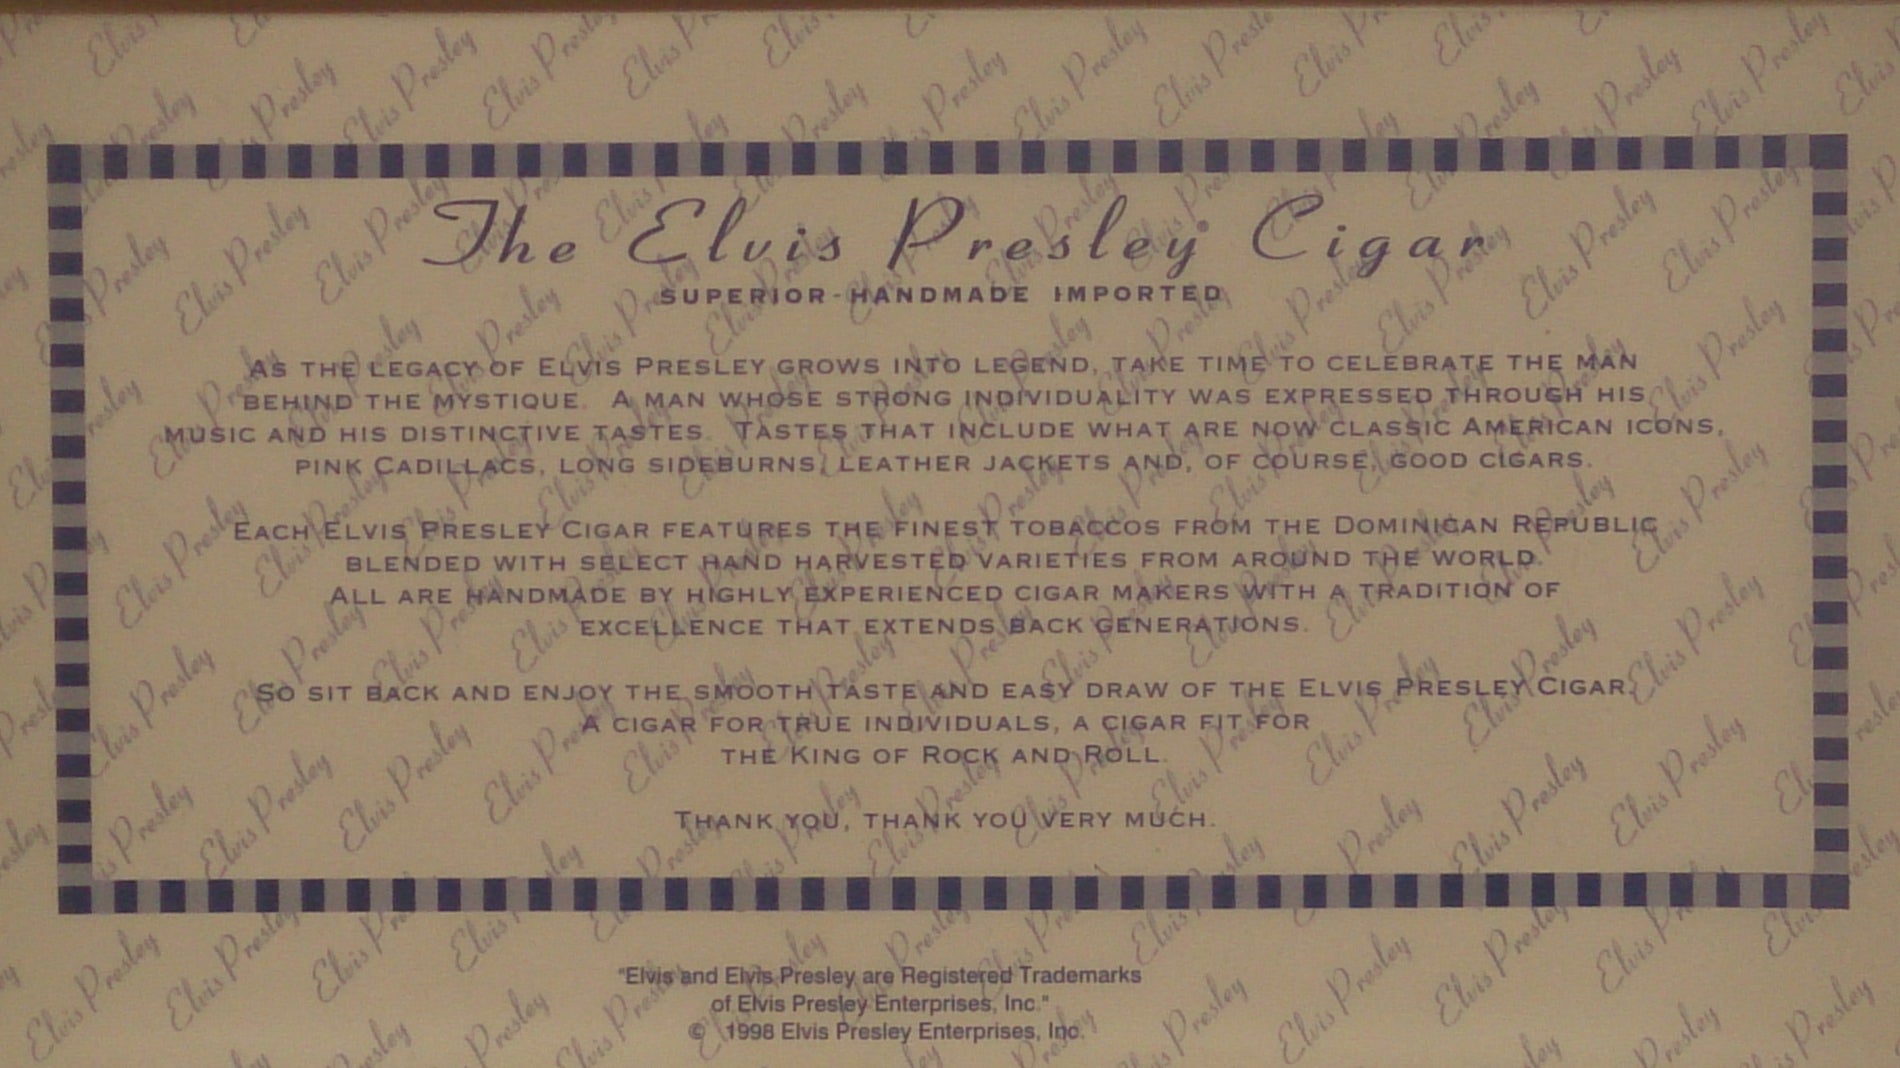 The Elvis Presley Cigar
SUPERIOR - HANDMADE IMPORTED
AS THE LEGACY OF ELVIS PRESLEY GROWS INTO LEGEND, TAKE TIME TO CELEBRATE THE MAN
BEHIND THE MYSTIQUE. A MAN WHOSE STRONG INDIVIDUALITY WAS EXPRESSED THROUGH HIS
MUSIC AND HIS DISTINCTIVE TASTES. TASTES THAT INCLUDE WHAT ARE NOW CLASSIC AMERICAN ICONS,
PINK CADILLACS, LONG SIDEBURNS, LEATHER JACKETS AND, OF COURSE, GOOD CIGARS.
EACH ELVIS PRESLEY CIGAR FEATURES THE FINEST TOBACCOS FROM THE DOMINICAN REPUBLIC
BLENDED WITH SELECT HAND HARVESTED VARIETIES FROM AROUND THE WORLD
ALL ARE HANDMADE BY HIGHLY EXPERIENCED CIGAR MAKERS WITH A TRADITION OF
EXCELLENCE THAT EXTENDS BACK GENERATIONS.
SO SIT BACK AND ENJOY THE SMOOTH TASTE AND EASY DRAW OF THE ELVIS PRESLEY CIGAR.
A CIGAR FOR TRUE INDIVIDUALS, A CIGAR FIT FOR
THE KING OF ROCK AND ROLL.
THANK YOU, THANK YOU VERY MUCH.
"Elvis and Elvis Presley are Registered Trademarks
of Elvis Presley Enterprises, Inc."
© 1998 Elvis Presley Enterprises, Inc.